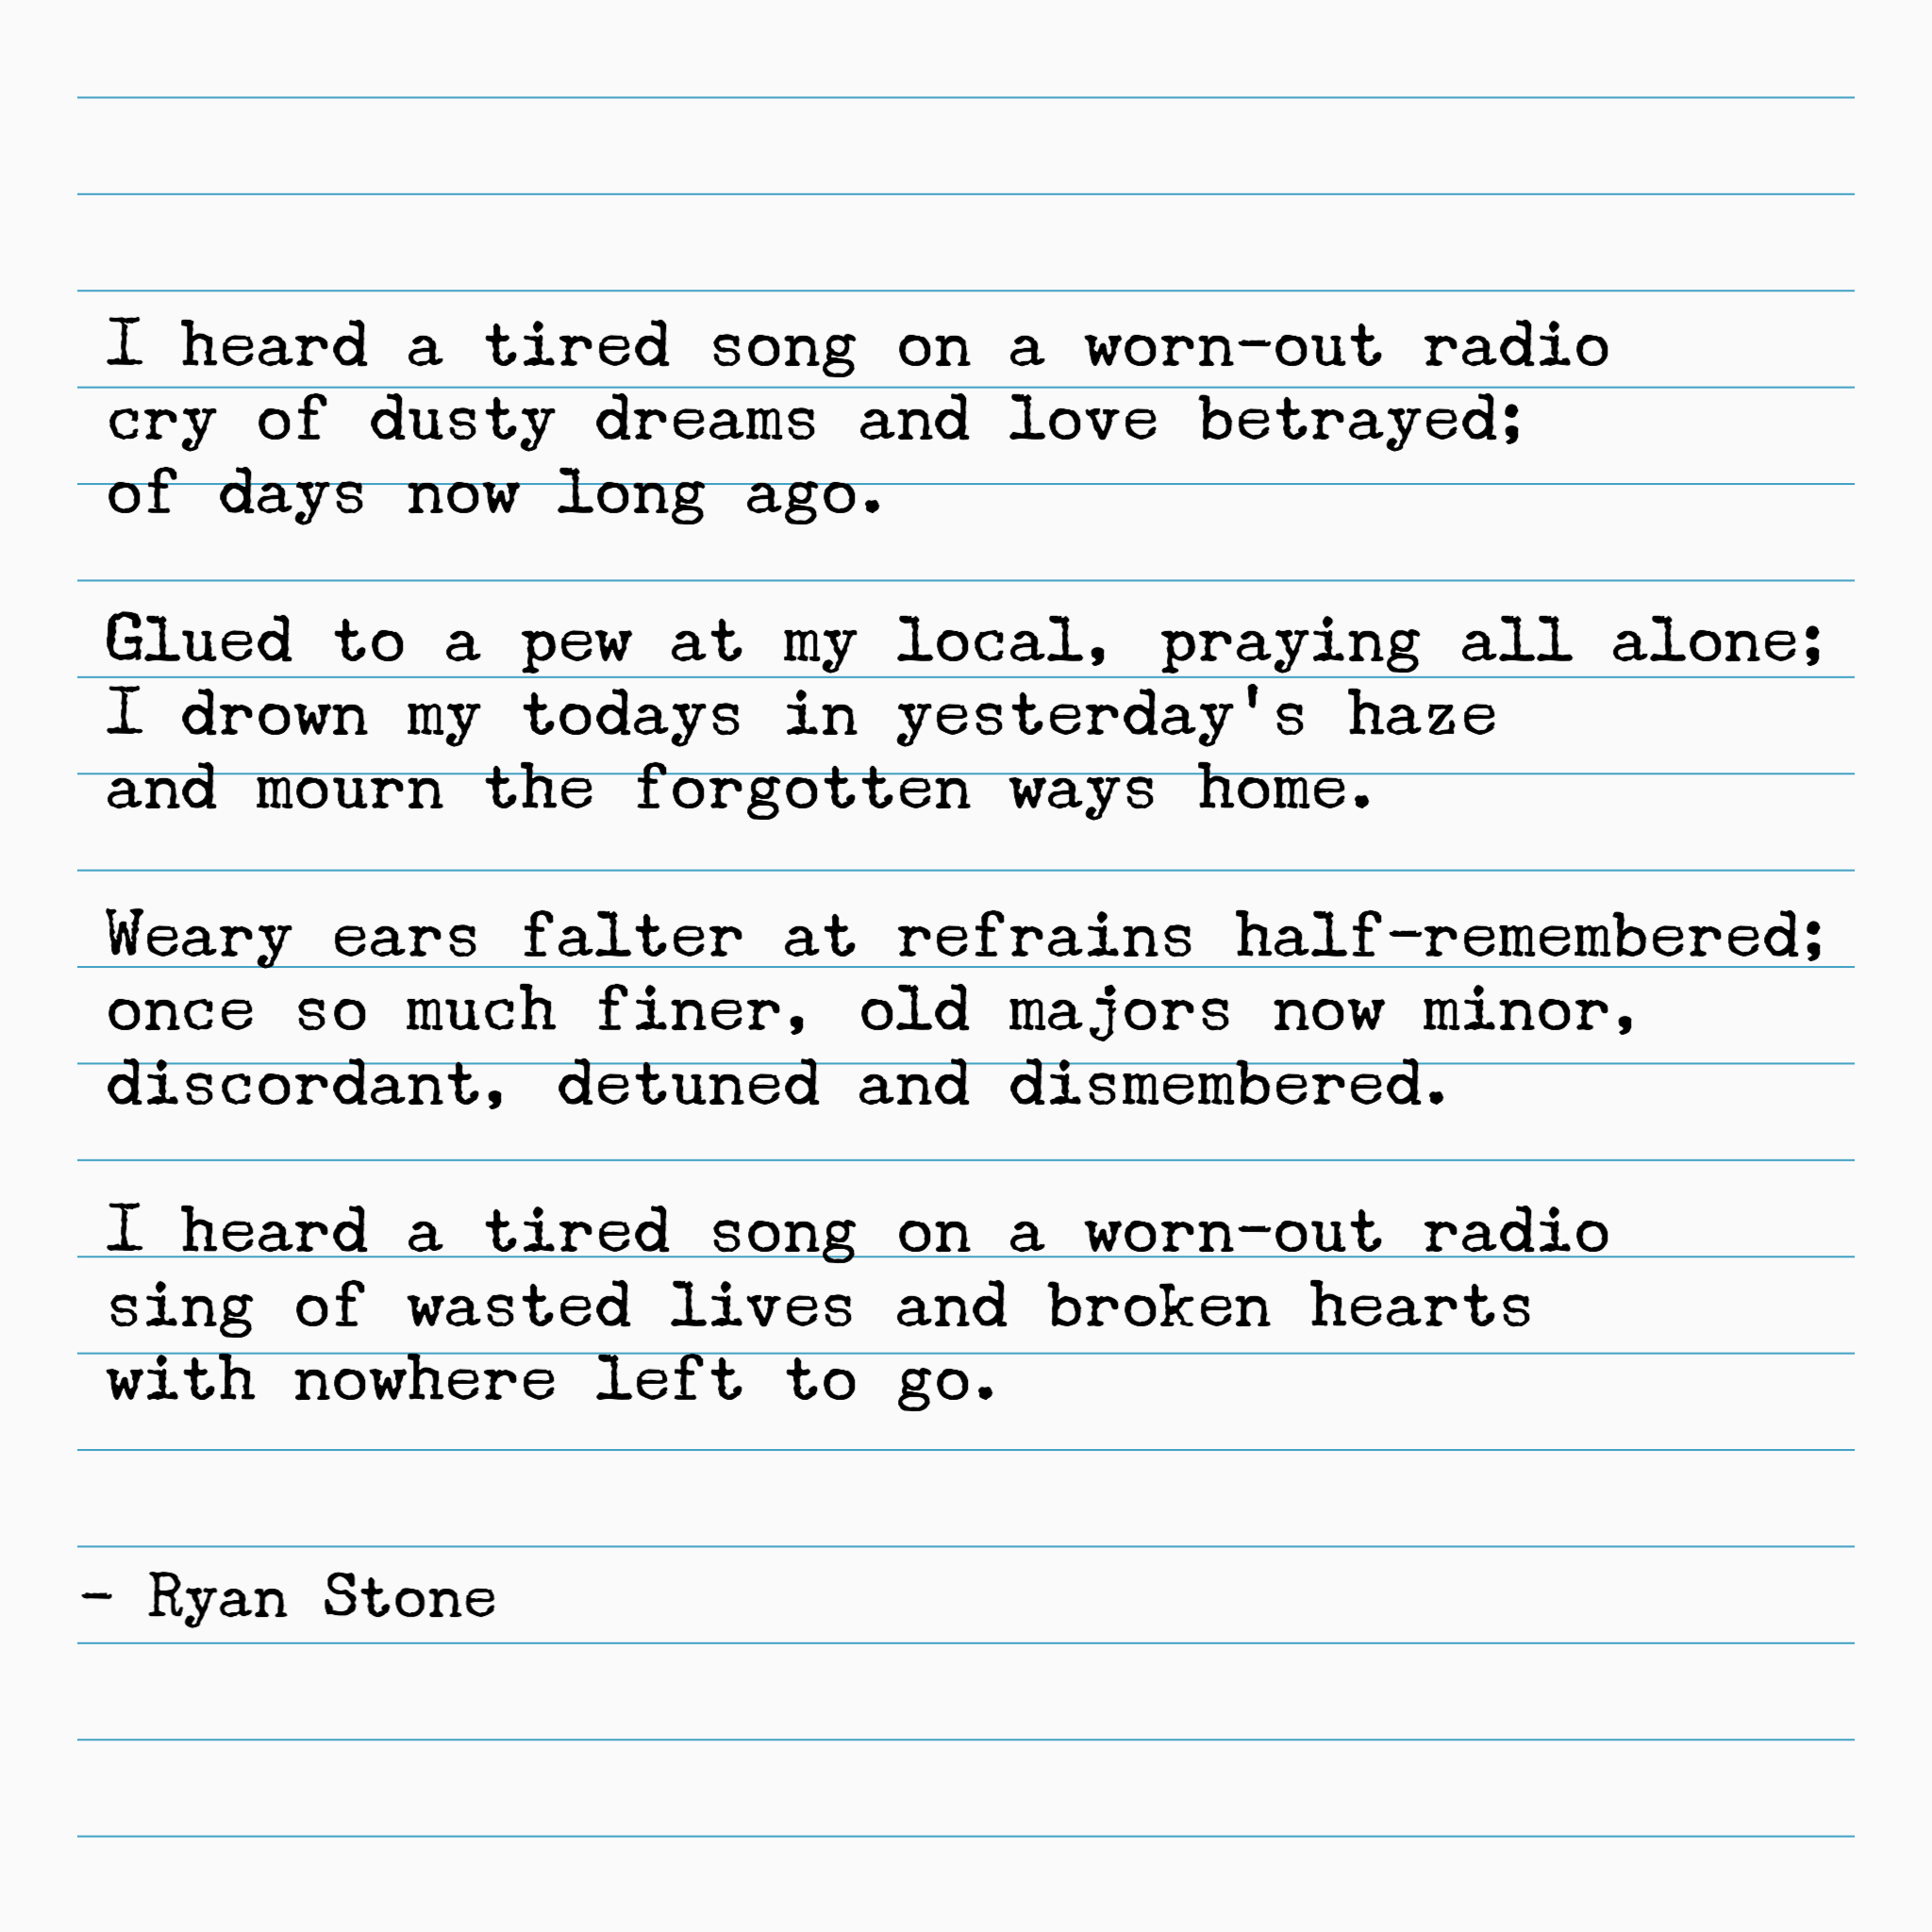 I heard a tired song on a worn-out radio
cry of dusty dreams and love betrayed;
of days now long ago.
Glued to a pew at my local, praying all alone;
I drown my todays in yesterday's haze
and mourn the forgotten ways home.
Weary ears falter at refrains half-remembered;
once so much finer, old majors now minor,
discordant, detuned and dismembered.
I heard a tired song on a worn-out radio
sing of wasted lives and broken hearts
with nowhere left to go.
- Ryan Stone